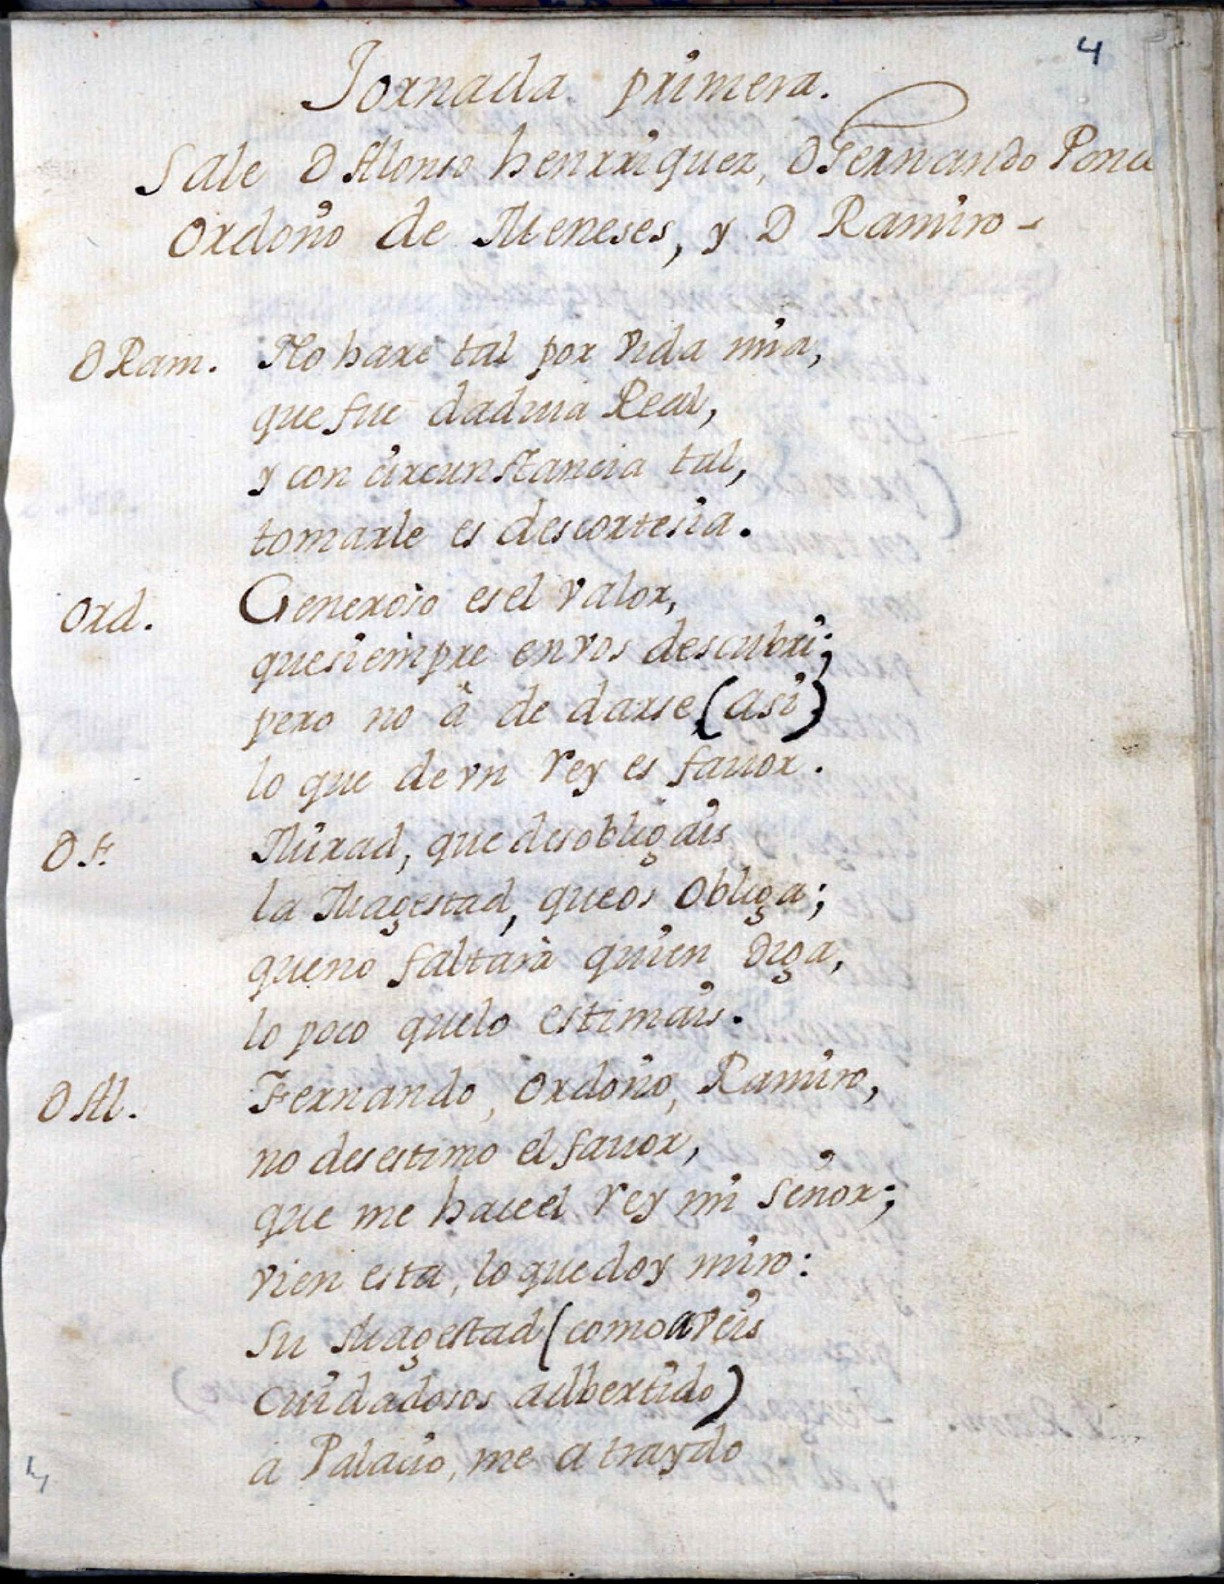 4
Jornada primera.
Sale D Alonso henrriquez, D Fernando Ponce
Ordoño de Meneses, y D Ramiro -
D Ram. No hare tal por vida mia,
que fue dadiua Real,
y con circunstancia tal,
tomarle es descortesia.
Ord. Generoso es el valor,
que siempre en vos descubri;
pero no â de darse (asi)
lo que de vn rey es fauor.
D F. Mirad, que desobligais
la Magestad, que os obliga;
que no faltarà quien diga,
lo poco que lo estimais.
D Al. Fernando, Ordoño, Ramiro,
no desestimo el fauor,
que me hace el rey mi señor;
vien esta, lo que doy miro:
su Magestad (como aveis
cuidadosos adbertido)
a Palacio, me a traydo